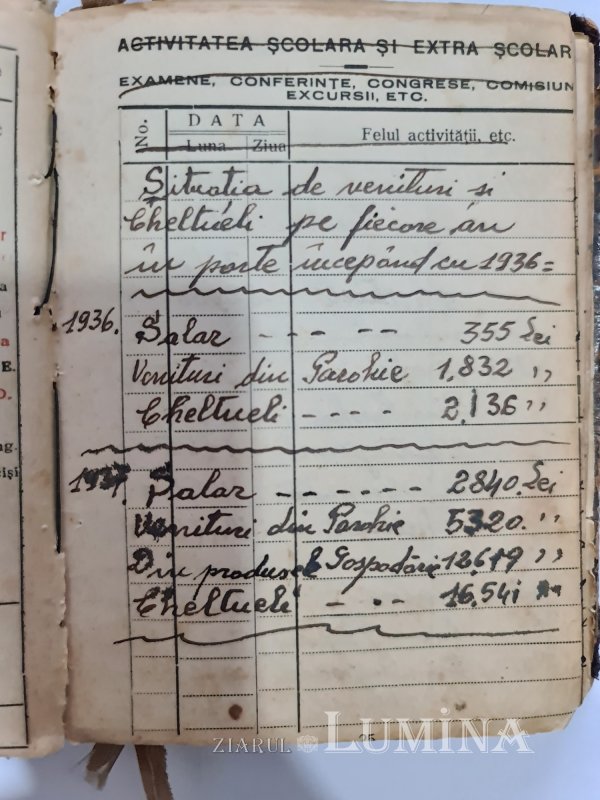 ACTIVITATEA ȘCOLARA ȘI EXTRA ȘCOLAR
EXAMENE, CONFERINȚE, CONGRESE, COMISIUN
EXCURSII, ETC.
No.
DATA
Luna Ziua
Felul activității, etc.
Situația de venituri si
Cheltueli pe fiecare an
în parte începând cu 1936=
1936. Salar - - - - - 355 Lei
Venituri din Parohie 1.832 "
Cheltueli - - - - 2.136 "
1937. Salar - - - - - - 2840. Lei
Venituri din Parohie 5320. "
Din produsele Gospodărie 12.619 "
Cheltueli - - - 16.541 "
25
ZIARUL LUMINA
E.
D.
ng.
ciși